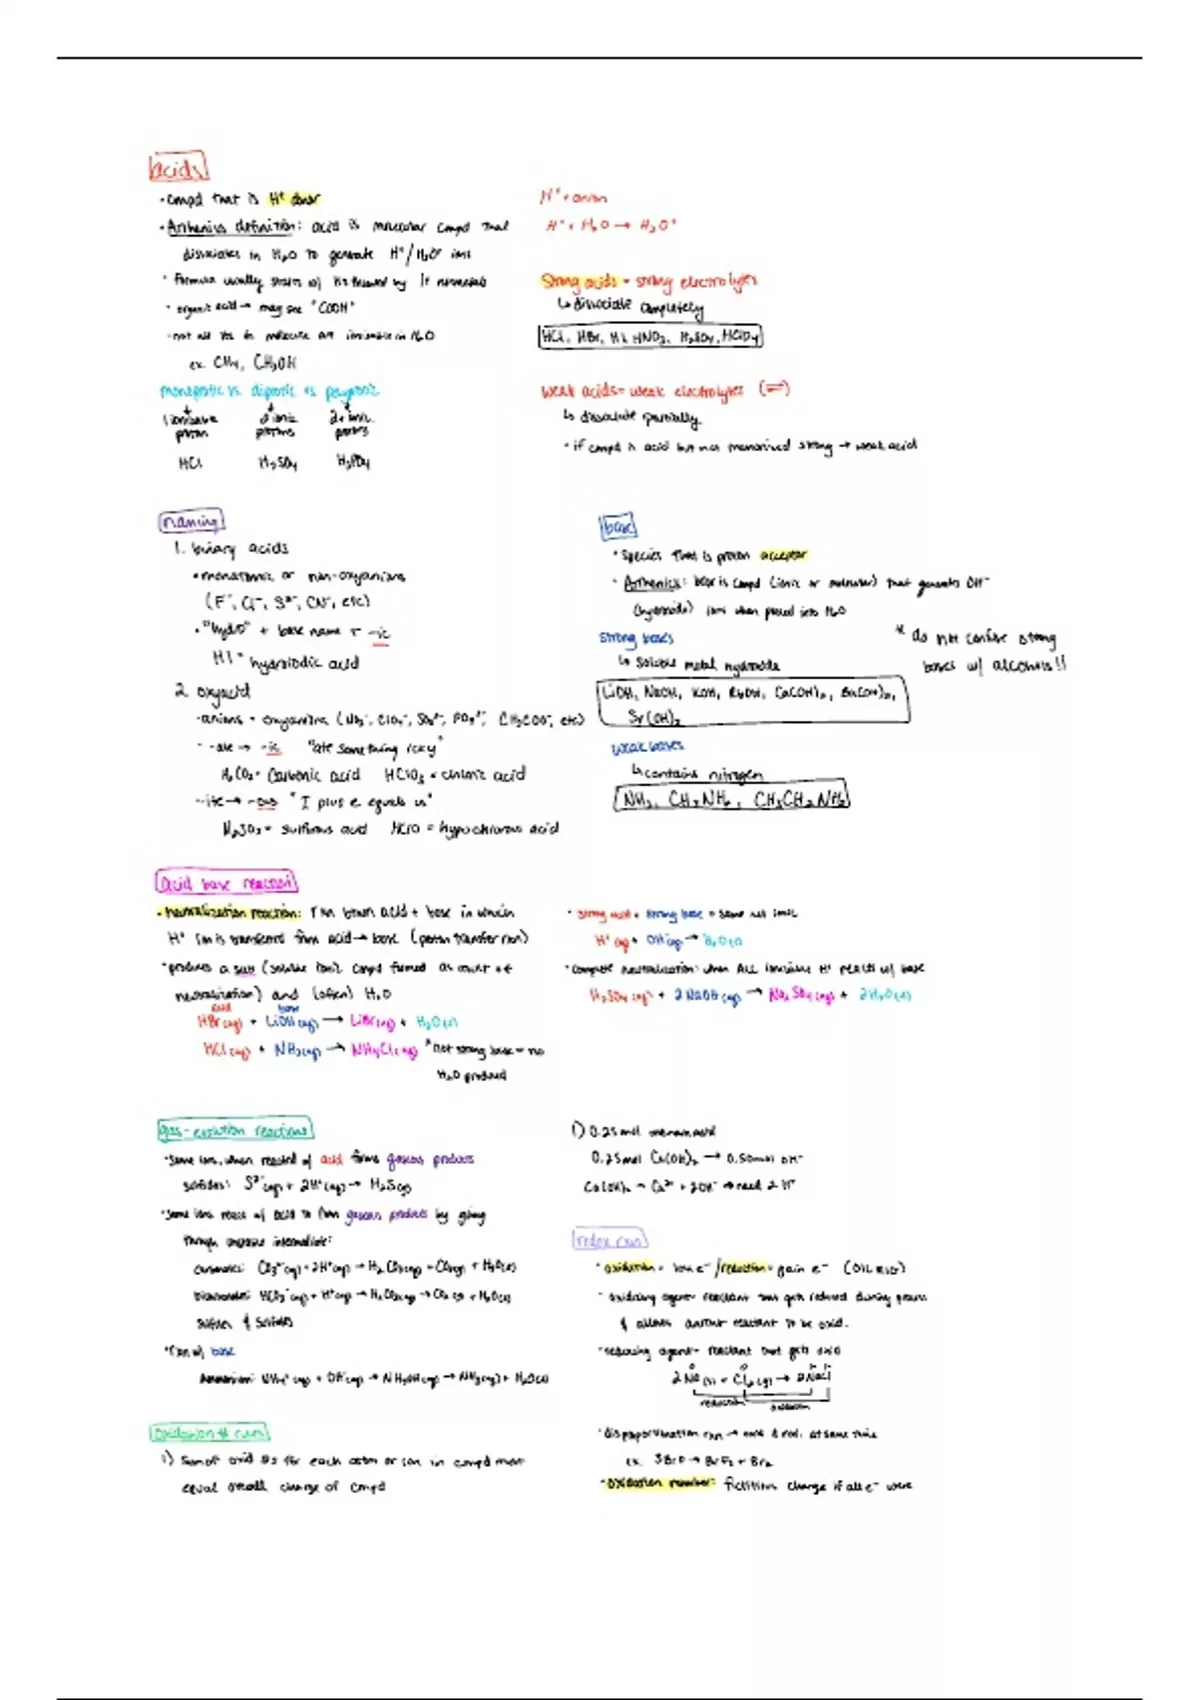 acids
• cmpd that is H⁺ donor
• Arrhenius definition: acid is molecular cmpd that
dissociates in H₂O to generate H⁺/H₃O⁺ ions
• formula usually starts w/ H's followed by
• organic acid → may see "COOH"
• not all H's in molecule are ionizable in H₂O
ex. CH₄, CH₃OH
monoprotic vs. diprotic vs polyprotic
1 ionizable proton
2 ionic protons
2+ ionic protons
HCl H₂SO₄ H₃PO₄
H⁺ + anion
H⁺ + H₂O → H₃O⁺
Strong acids = strong electrolytes
↳ dissociate completely
HCl, HBr, HI, HNO₃, H₂SO₄, HClO₄
weak acids = weak electrolytes (⇌)
↳ dissociate partially
• if cmpd is acid but not memorized strong → weak acid
naming
1. binary acids
• monatomic or non-oxyanions
(F⁻, Cl⁻, S²⁻, CN⁻, etc)
• "hydro" + base name + -ic
HI = hydroiodic acid
2. oxyacid
• anions = oxyanions (NO₃⁻, ClO₄⁻, SO₄²⁻, PO₄³⁻, CH₃COO⁻, etc)
• -ate → -ic "ate something icky"
H₂CO₃ = Carbonic acid HClO₃ = chloric acid
• -ite → -ous "I plus e equals us"
H₂SO₃ = sulfurous acid HClO = hypochlorous acid
base
• Species that is proton acceptor
• Arrhenius: base is cmpd (ionic or molecular) that generates OH⁻
(hydroxide) ions when placed into H₂O
strong bases
↳ soluble metal hydroxide
LiOH, NaOH, KOH, RbOH, Ca(OH)₂, Ba(OH)₂,
Sr(OH)₂
* do not confuse strong
bases w/ alcohols!!
weak bases
↳ contains nitrogen
NH₃, CH₃NH₂, CH₃CH₂NH₂
acid base reaction
• neutralization reaction: rxn btwn acid + base in which
H⁺ ion is transferred from acid → base (proton transfer rxn)
• produces a salt (soluble ionic cmpd formed as result of
neutralization) and (often) H₂O
acid base
HBr(aq) + LiOH(aq) → LiBr(aq) + H₂O(l)
HCl(aq) + NH₃(aq) → NH₄Cl(aq) * not strong base = no
H₂O produced
• strong acid + strong base = same net ionic
H⁺(aq) + OH⁻(aq) → H₂O(l)
• complete neutralization: when ALL ionizable H⁺ reacts w/ base
H₂SO₄(aq) + 2NaOH(aq) → Na₂SO₄(aq) + 2H₂O(l)
gas-evolution reactions
• Some ions, when reacted w/ acid forms gaseous products
sulfides: S²⁻(aq) + 2H⁺(aq) → H₂S(g)
• Some ions react w/ acid to form gaseous products by going
through intermediate:
carbonates: CO₃²⁻(aq) + 2H⁺(aq) → H₂CO₃(aq) → CO₂(g) + H₂O(l)
bicarbonates: HCO₃⁻(aq) + H⁺(aq) → H₂CO₃(aq) → CO₂(g) + H₂O(l)
• rxn w/ base
Ammonium: NH₄⁺(aq) + OH⁻(aq) → NH₄OH(aq) → NH₃(g) + H₂O(l)
1) 0.25 mol
0.25 mol Ca(OH)₂ → 0.50 mol OH⁻
Ca(OH)₂ → Ca²⁺ + 2OH⁻ → need 2 H⁺
redox rxn
• oxidation = lose e⁻ / reduction = gain e⁻ (OIL RIG)
• oxidizing agent - reactant that gets reduced during process
& allows another reactant to be oxid.
• reducing agent - reactant that gets oxid
2Na(s) + Cl₂(g) → 2NaCl
reduction
oxidation
• disproportionation rxn → oxid & red. at same time
ex. 3BrO → BrF₂ + Br₂
• oxidation number: fictitious charge if all e⁻ were
oxidation # rules
1) Sum of oxid #s for each atom or ion in cmpd must
equal overall charge of cmpd